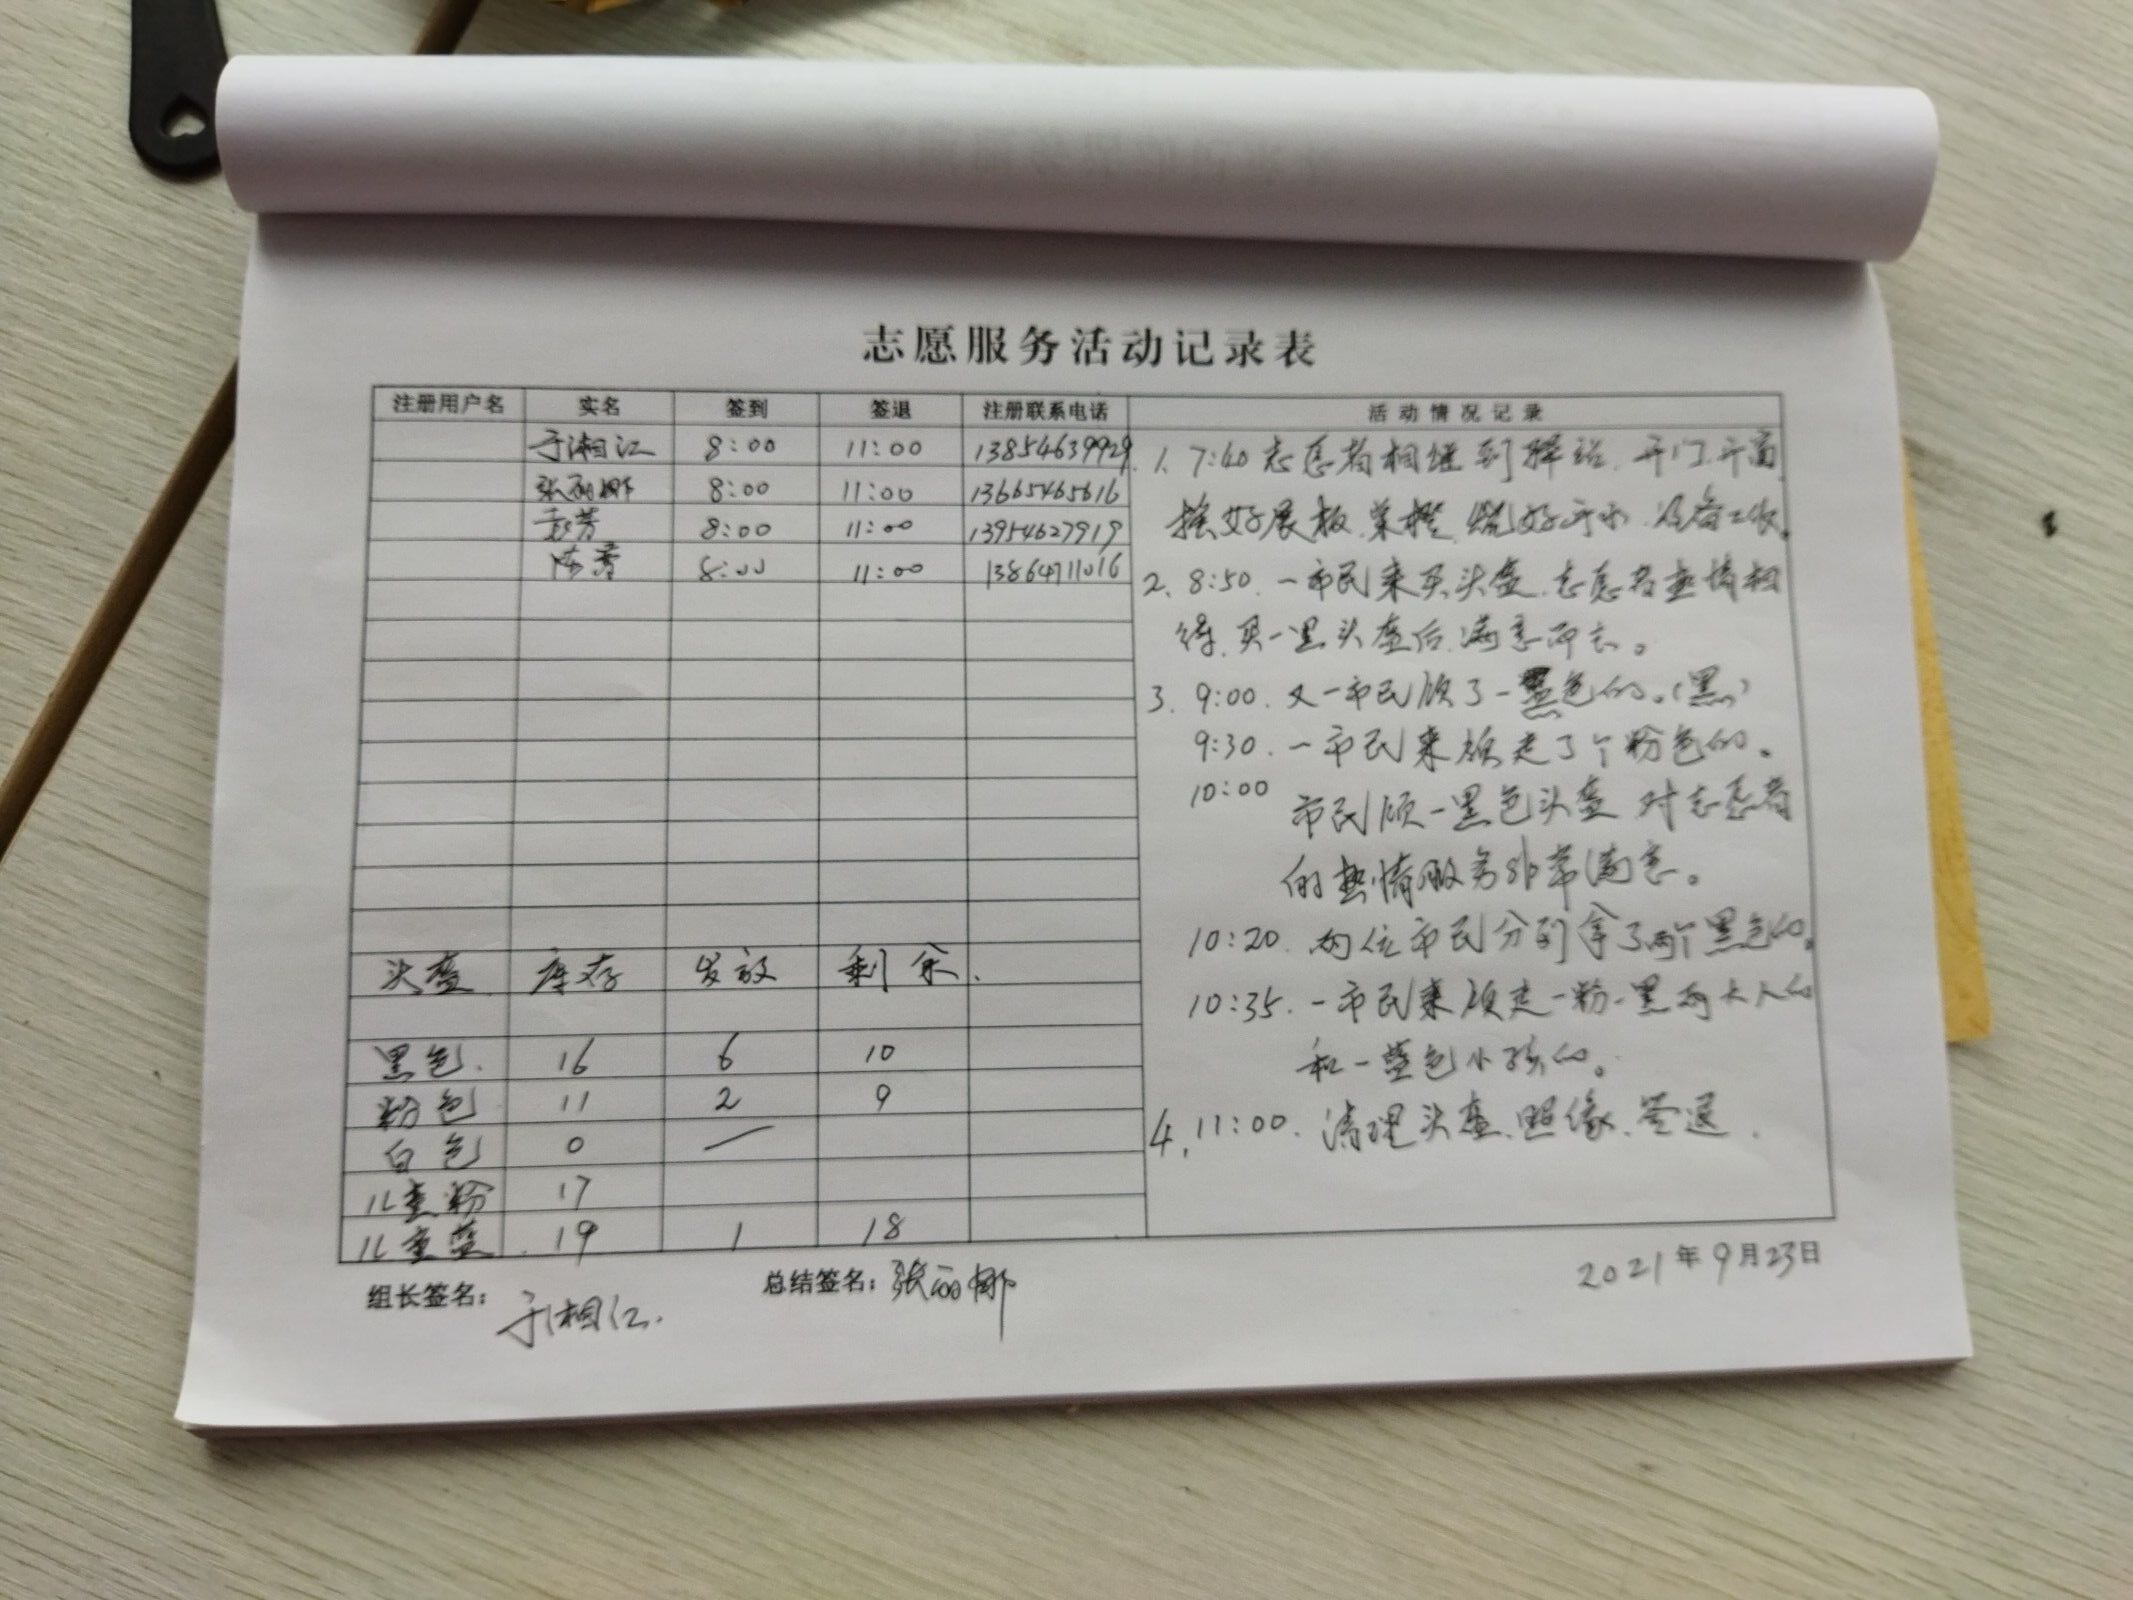 志愿服务活动记录表
注册用户名 实名 签到 签退 注册联系电话 活动情况记录
于湘江 8:00 11:00 13854639929
张丽娜 8:00 11:00 13665465616
芳 8:00 11:00 13954627919
陈 8:00 11:00 13864711016
头盔 库存 发放 剩余.
黑色. 16 6 10
粉色 11 2 9
白色 0 —
儿童粉 17
儿童蓝. 19 1 18
1、7:40志愿者相继到驿站.开门.开窗
好展板.桌橙.烧好开水.准备工作。
2、8:50.一市民来买头盔.志愿者热情相
待.买一黑头盔后.满意而去。
3.9:00.又一市民领了一色的。(黑)
9:30.一市民来领走了个粉色的。
10:00 市民领一黑色头盔 对志愿者
的热情服务非常满意。
10:20.两位市民分别拿了两个黑色的。
10:35.一市民来领走一粉一黑两大人的
和一蓝色小孩的。
4、11:00.清理头盔、照像、签退.
组长签名: 于湘江. 总结签名: 张丽娜 2021年9月23日